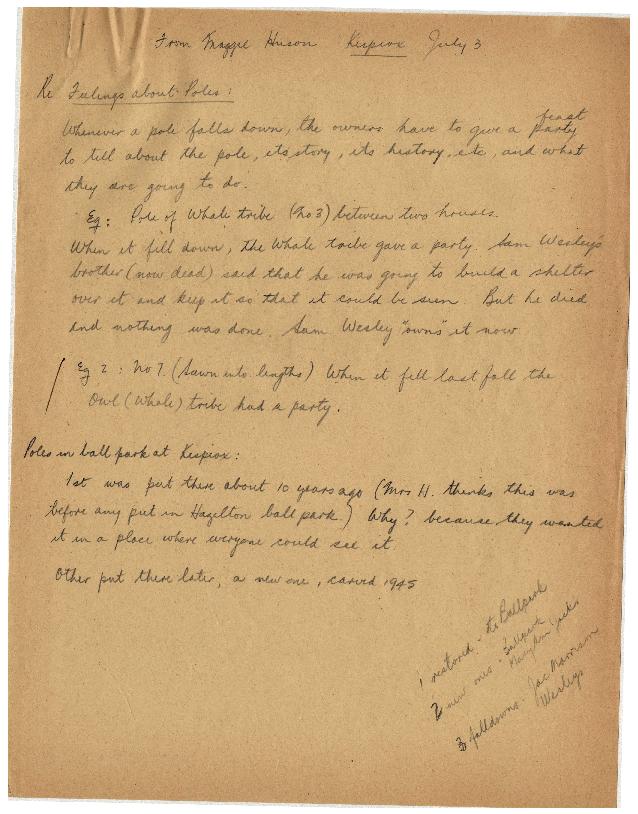 From Maggie Huson Kispiox July 3
Re Feelings about Poles:
feast
Whenever a pole falls down, the owners have to give a party
to tell about the pole, its story, its history, etc, and what
they are going to do.
Eg: Pole of Whale tribe (No 3) between two houses.
When it fill down, the Whale tribe gave a party. Sam Wesley's
brother (now dead) said that he was going to build a shelter
over it and keep it so that it could be seen. But he died
and nothing was done. Sam Wesley "owns" it now
Eg 2: No 7. (Sawn into lengths) When it fell last fall the
Owl (Whale) tribe had a party.
Poles in ball park at Kispiox:
1st was put there about 10 years ago (Mrs H. thinks this was
before any put in Hazelton ball park.) Why? because they wanted
it in a place where everyone could see it.
Other put there later, a new one, carved 1945
1 restored - to Ballpark
2 new ones - Ballpark
Mary Ann Jacks
3 falldowns - Jac Morrison
Wesleys